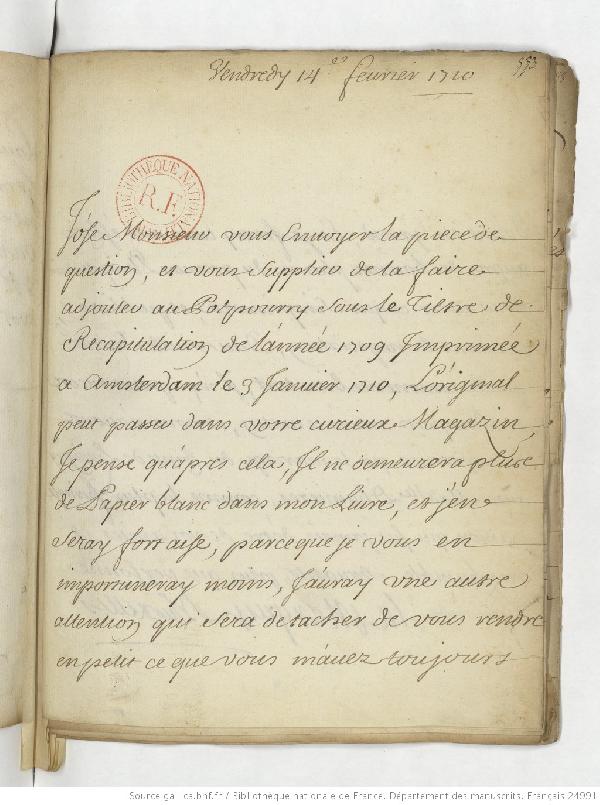 Vendredy 14es fevrier 1710
553
BIBLIOTHÈQUE NATIONALE
R.F.
J'ose Monsieur vous Envoyer la piece de
question, et vous supplier de la faire
adjouter au Potpourry sous le Tiltre de
Recapitulation de l'année 1709 Imprimée
a Amsterdam le 3 Janvier 1710, L'original
peut passer dans votre curieux Magazin,
Je pense qu'apres cela, Il ne demeurera plus
de Papier blanc dans mon Livre, et j'en
seray fort aise, parce que je vous en
importuneray moins, J'auray vne autre
attention qui sera de tacher de vous rendre
en petit ce que vous m'avez toujours
Source gallica.bnf.fr / Bibliothèque nationale de France. Département des manuscrits. Français 24991